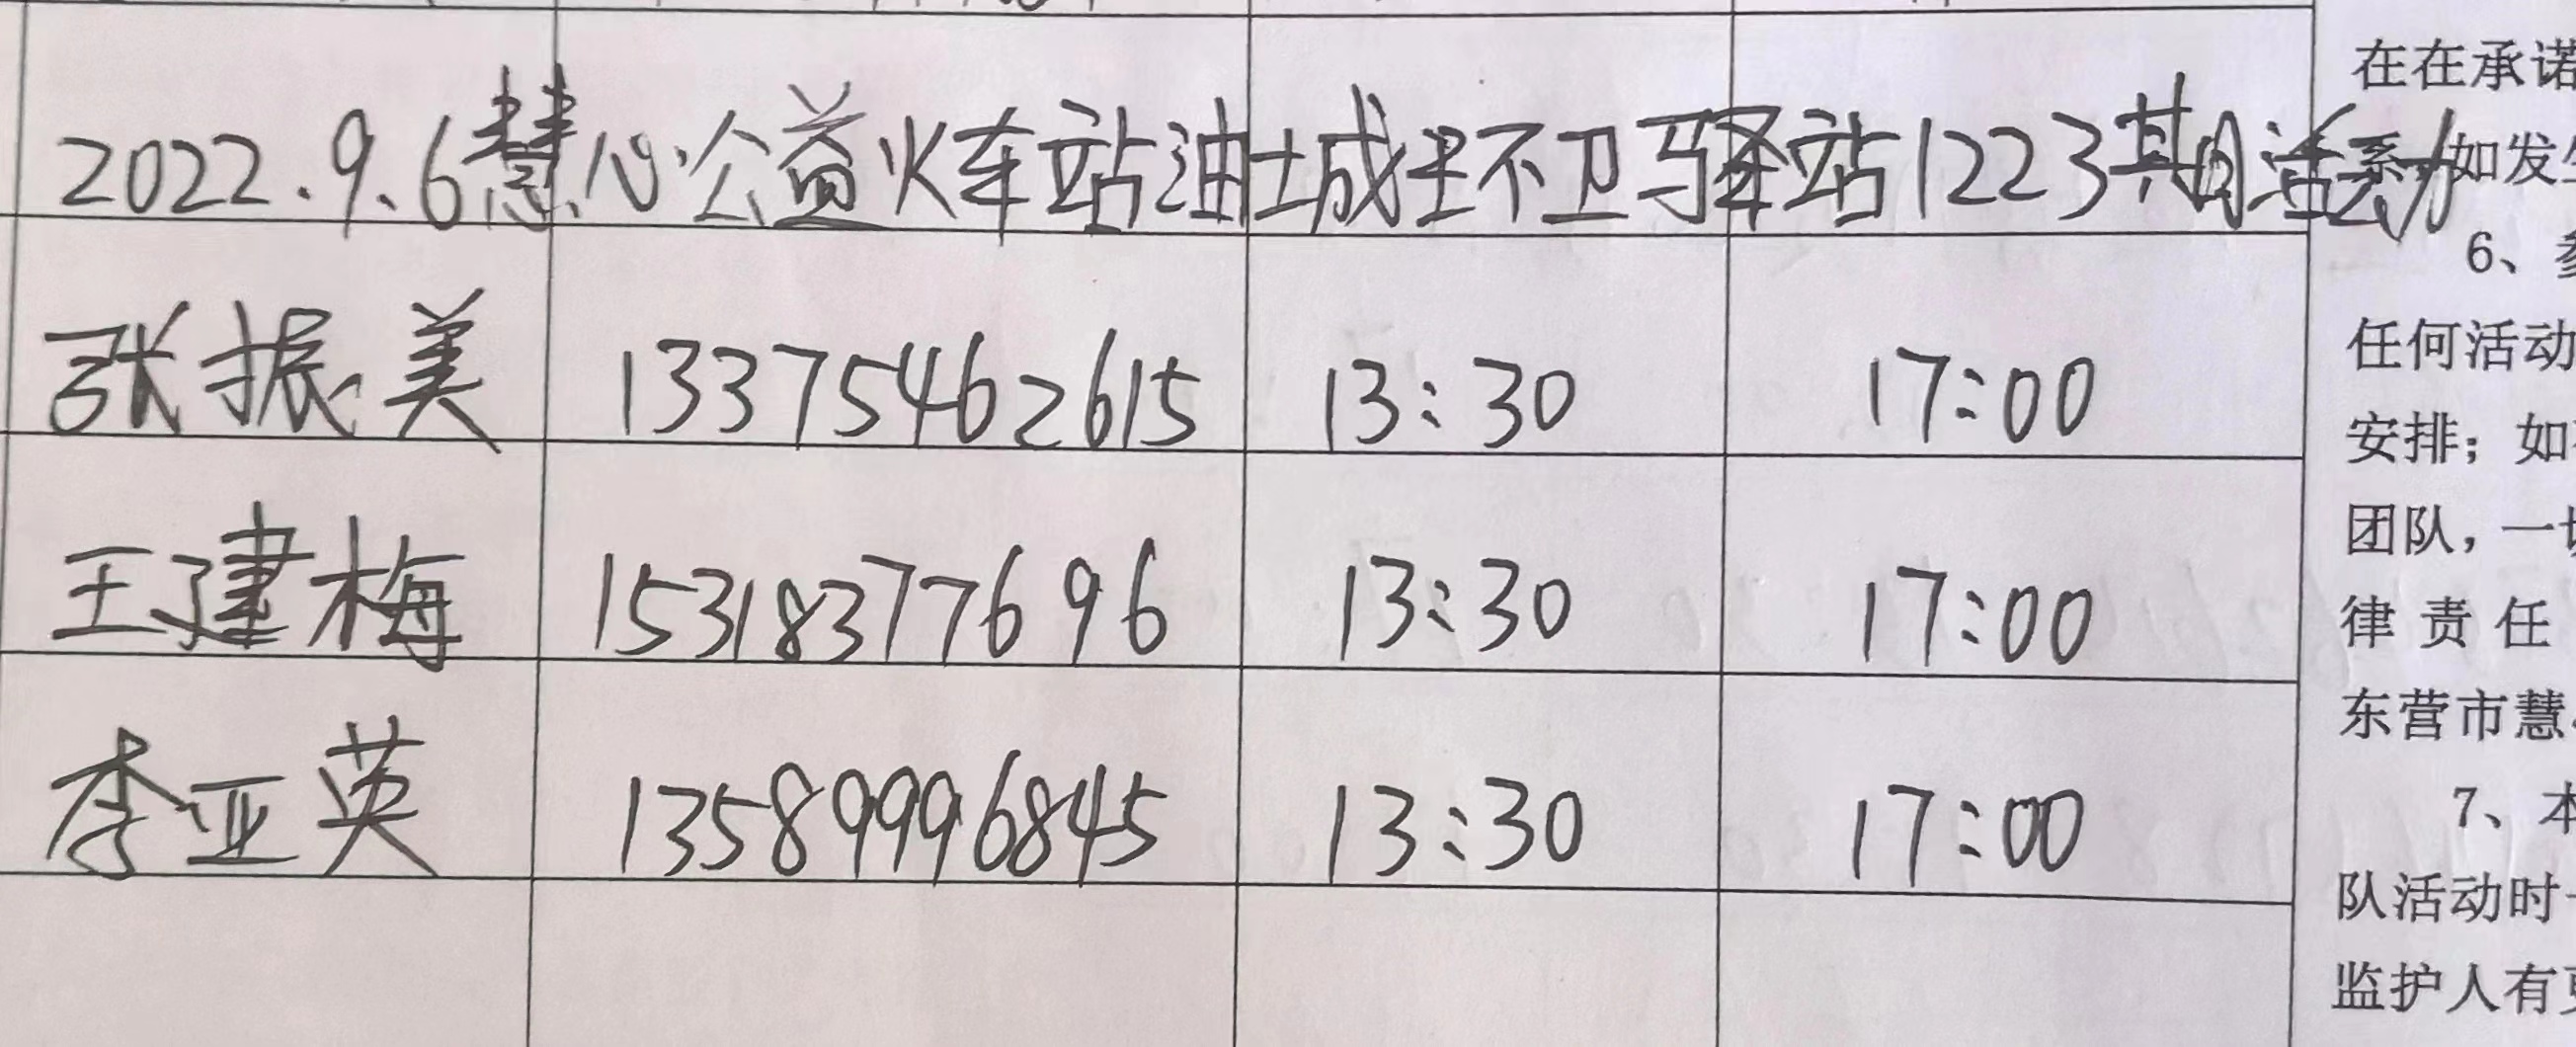 2022.9.6慧心公益火车站油城环卫驿站1223期活动
张振美 13375462615 13:30 17:00
王建梅 15318377696 13:30 17:00
李亚英 13589996845 13:30 17:00
在在承诺
系 如发生
6、参
任何活动
安排；如
团队，一切
律责任
东营市慧
7、本
队活动时
监护人有